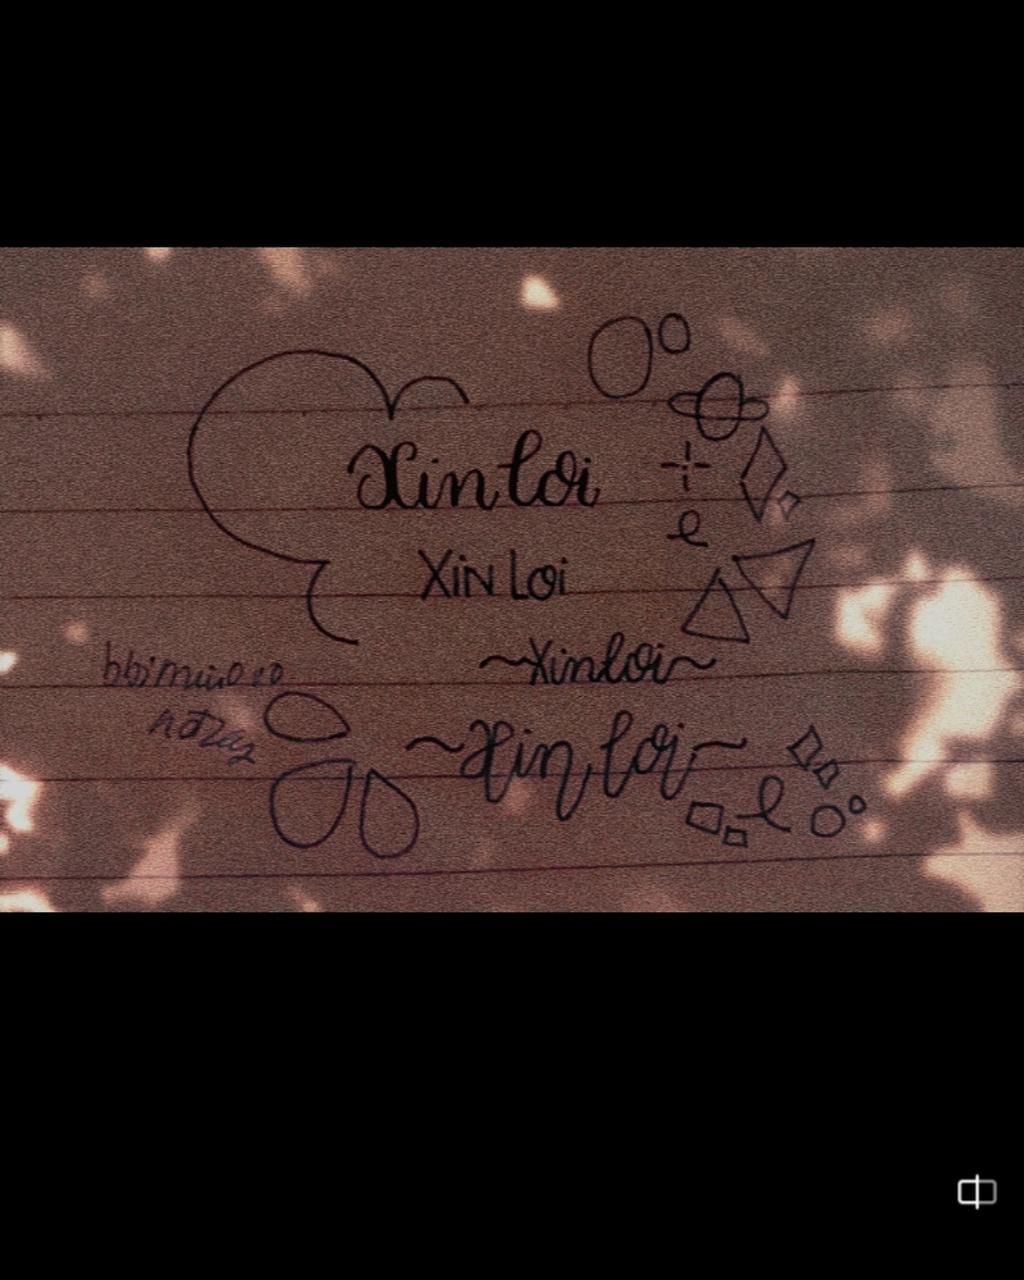 Xin loi
XiN Loi
~Xin loi~
~Xin loi~